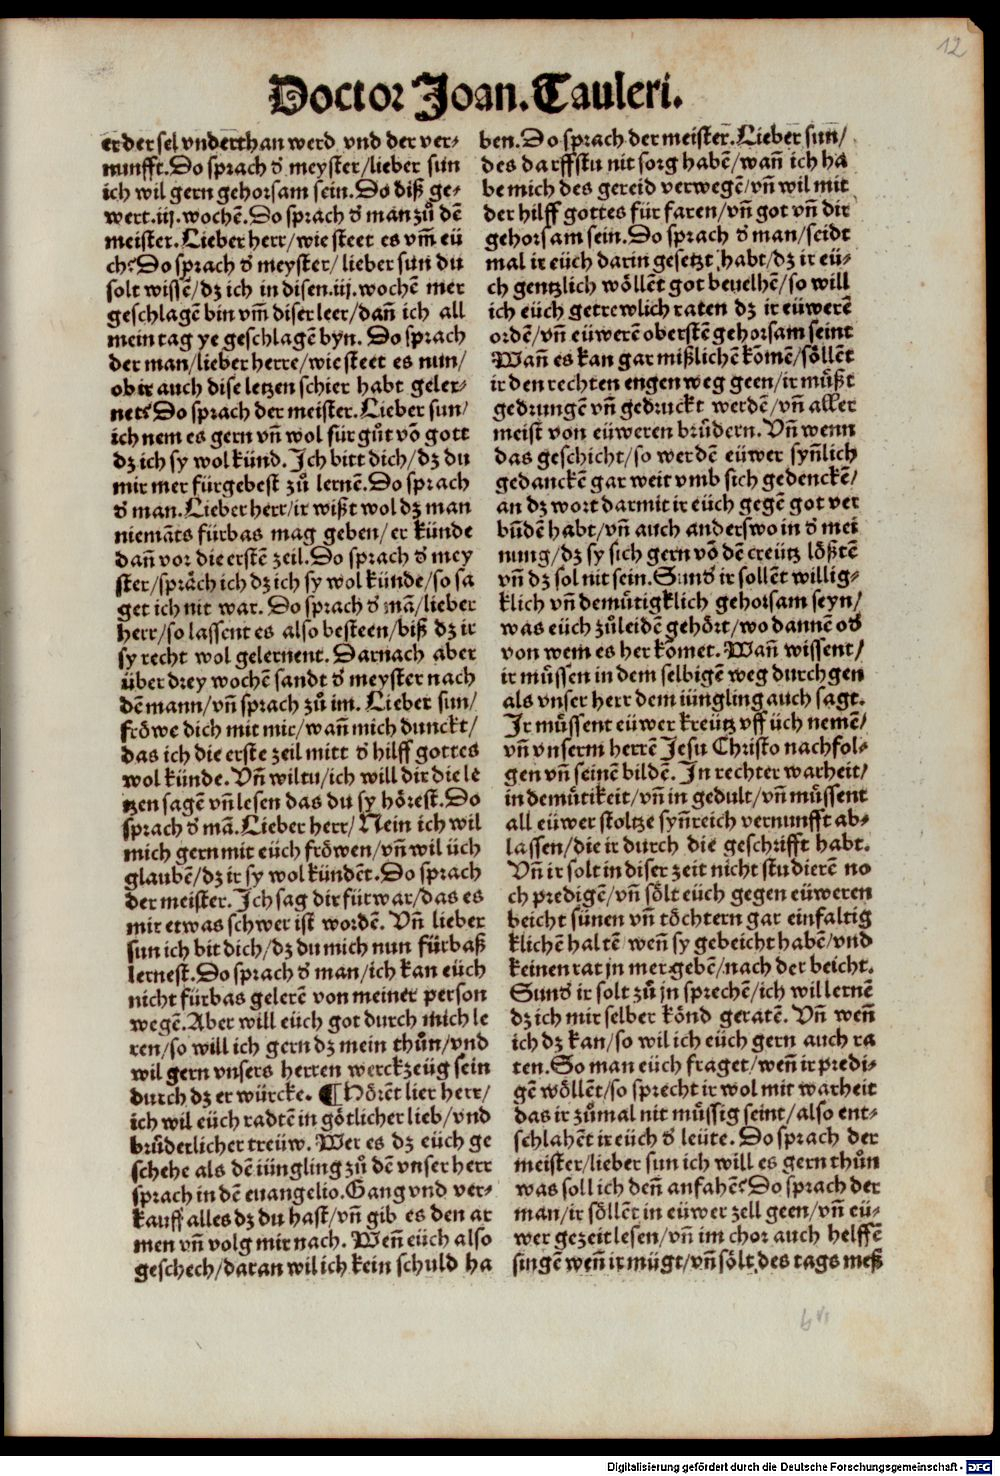 12
Doctor Joan. Tauleri.
er der sel vnderthan werd vnd der ver-
nunfft. Do sprach ď meyster/lieber sun
ich wil gern gehorsam sein. Do diß ge-
wert .iij. wochē. Do sprach ď man zů dē
meister. Lieber herr/wie steet es vm̄ eü
ch? Do sprach ď meyster/lieber sun du
solt wissē/dz ich in disen .iij. wochē mer
geschlagē bin vm̄ diser leer/dañ ich all
mein tag ye geschlagē byn. Do sprach
der man/lieber herre/wie steet es nun/
ob ir auch dise letzen schier habt geler-
net? Do sprach der meister. Lieber sun/
ich nem es gern vñ wol für gůt vō gott
dz ich sy wol künd. Ich bitt dich/dz du
mir mer fürgebest zů lernē. Do sprach
ď man. Lieber herr/ir wißt wol dz man
niemāts fürbas mag geben/er künde
dañ vor die erstē zeil. Do sprach ď mey
ster/spräch ich dz ich sy wol künde/so sa
get ich nit war. Do sprach ď mā/lieber
herr/so lassent es also besteen/biß dz ir
sy recht wol gelernent. Darnach aber
über drey wochē sandt ď meyster nach
dē mann/vñ sprach zů im. Lieber sun/
fröwe dich mit mir/wañ mich dunckt/
das ich die erste zeil mitt ď hilff gottes
wol künde. Vñ wiltu/ich will dir die le
tzen sagē vñ lesen das du sy hörest. Do
sprach ď mā. Lieber herr/Nein ich wil
mich gern mit eüch fröwen/vñ wil üch
glaubē/dz ir sy wol kündēt. Do sprach
der meister. Ich sag dir fürwar/das es
mir etwas schwer ist wordē. Vñ lieber
sun ich bit dich/dz du mich nun fürbaß
lernest. Do sprach ď man/ich kan eüch
nicht fürbas gelerē von meiner person
wegē. Aber will eüch got durch mich le
ren/so will ich gern dz mein thůn/vnd
wil gern vnsers herren werckzeüg sein
durch dz er würcke. ¶ Hörēt lier herr/
ich wil eüch radtē in götlicher lieb/vnd
brůderlicher treüw. Wer es dz eüch ge
schehe als dē iüngling zů dē vnser herr
sprach in dē euangelio. Gang vnd ver-
kauff alles dz du hast/vñ gib es den ar
men vñ volg mir nach. Weñ eüch also
geschech/daran wil ich kein schuld ha
ben. Do sprach der meister. Lieber sun/
des darffstu nit sorg habē/wañ ich ha
be mich des gereid verwegē/vñ wil mit
der hilff gottes für faren/vñ got vñ dir
gehorsam sein. Do sprach ď man/seidt
mal ir eüch darin gesetzt habt/dz ir eü-
ch gentzlich wöllēt got beuelhē/so will
ich eüch getrewlich raten dz ir eüwerē
ordē/vñ eüwerē oberstē gehorsam seint
Wañ es kan gar mißlichē kōmē/söllēt
ir den rechten engen weg geen/ir müßt
gedrungē vñ gedruckt werdē/vñ aller
meist von eüweren brůdern. Vñ wenn
das geschicht/so werdē eüwer syñlich
gedanckē gar weit vmb sich gedenckē/
an dz wort darmit ir eüch gegē got ver
bündē habt/vñ auch anderswo in ď mei
nung/dz sy sich gern vō dē creütz lößtē
vñ dz sol nit sein. Sunď ir sollēt willig-
klich vñ demütigklich gehorsam seyn/
was eüch zůleidē gehört/wo dannē oď
von wem es her komet. Wañ wissent/
ir müssen in dem selbigē weg durchgen
als vnser herr dem iüngling auch sagt.
Ir müssent eüwer kreütz vff üch nemē/
vñ vnserm herrē Jesu Christo nachfol-
gen vñ seinē bildē. In rechter warheit/
in demütikeit/vñ in gedult/vñ müssent
all eüwer stoltze syñreich vernunfft ab-
lassen/die ir durch die geschrifft habt.
Vñ ir solt in diser zeit nicht studierē no
ch predigē/vñ sölt eüch gegen eüweren
beicht sünen vñ töchtern gar einfaltig
klichē haltē weñ sy gebeicht habē/vnd
keinen rat jn mer gebē/nach der beicht.
Sunď ir solt zů jn sprechē/ich wil lernē
dz ich mir selber könd geratē. Vñ weñ
ich dz kan/so wil ich eüch gern auch ra
ten. So man eüch fraget/weñ ir predi-
gē wöllēt/so sprecht ir wol mit warheit
das ir zůmal nit müssig seint/also ent-
schlahēt ir eüch ď leüte. Do sprach der
meister/lieber sun ich will es gern thůn
was soll ich deñ anfahē? Do sprach der
man/ir söllēt in eüwer zell geen/vñ eü-
wer gezeit lesen/vñ im chor auch helffē
singē weñ ir mügt/vñ sölt des tags meß
Digitalisierung gefördert durch die Deutsche Forschungsgemeinschaft - DFG